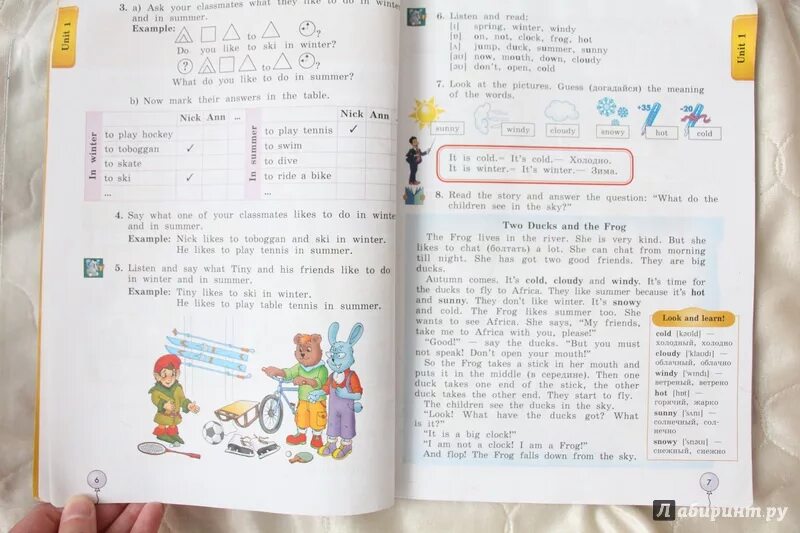 Unit 1
3. a) Ask your classmates what they like to do in winter
and in summer.
Example:
to
to
?
Do you like to ski in winter?
?
to
to
?
What do you like to do in summer?
b) Now mark their answers in the table.
In winter
Nick Ann ...
to play hockey
to toboggan ✓
to skate
to ski ✓
...
In summer
Nick Ann
to play tennis ✓
to swim
to dive
to ride a bike
...
4. Say what one of your classmates likes to do in winte
and in summer.
Example: Nick likes to toboggan and ski in winter.
He likes to play tennis in summer.
5. Listen and say what Tiny and his friends like to do
in winter and in summer.
Example: Tiny likes to ski in winter.
He likes to play table tennis in summer.
6
Unit 1
6. Listen and read:
[ɪ] spring, winter, windy
[ɒ] on, not, clock, frog, hot
[ʌ] jump, duck, summer, sunny
[aʊ] now, mouth, down, cloudy
[əʊ] don't, open, cold
7. Look at the pictures. Guess (догадайся) the meaning
of the words.
+35 -20
sunny windy cloudy snowy hot cold
It is cold.= It's cold.— Холодно.
It is winter.= It's winter.— Зима.
8. Read the story and answer the question: "What do the
children see in the sky?"
Two Ducks and the Frog
The Frog lives in the river. She is very kind. But she
likes to chat (болтать) a lot. She can chat from morning
till night. She has got two good friends. They are big
ducks.
Autumn comes. It's cold, cloudy and windy. It's time for
the ducks to fly to Africa. They like summer because it's hot
and sunny. They don't like winter. It's snowy
and cold. The Frog likes summer too. She
wants to see Africa. She says, "My friends,
take me to Africa with you, please!"
"Good!" — say the ducks. "But you must
not speak! Don't open your mouth!"
So the Frog takes a stick in her mouth and
puts it in the middle (в середине). Then one
duck takes one end of the stick, the other
duck takes the other end. They start to fly.
The children see the ducks in the sky.
"Look! What have the ducks got? What
is it?"
"It is a big clock!"
"I am not a clock! I am a Frog!"
And flop! The Frog falls down from the sky.
Look and learn!
cold [kəʊld] —
холодный, холодно
cloudy ['klaʊdɪ] —
облачный, облачно
windy ['wɪndɪ] —
ветреный, ветрено
hot [hɒt] —
горячий, жарко
sunny ['sʌnɪ] —
солнечный, сол-
нечно
snowy ['snəʊɪ] —
снежный, снежно
7
Лабиринт.ру